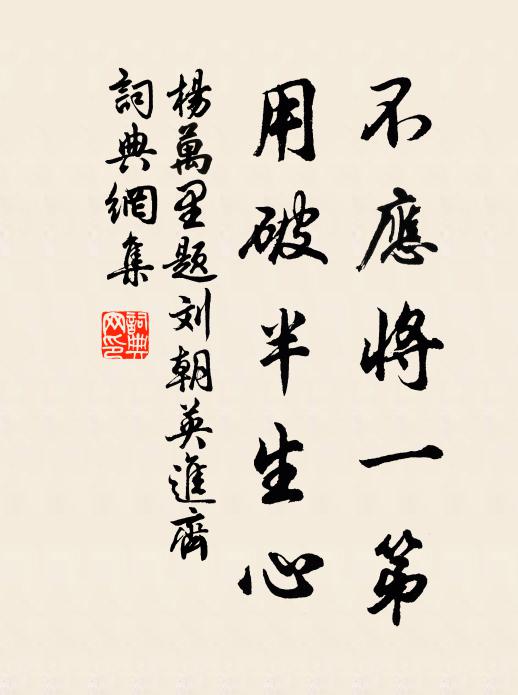 不應將一第
用破半生心
楊萬里题刘朝英進齋
詞典網集
詞典
网印